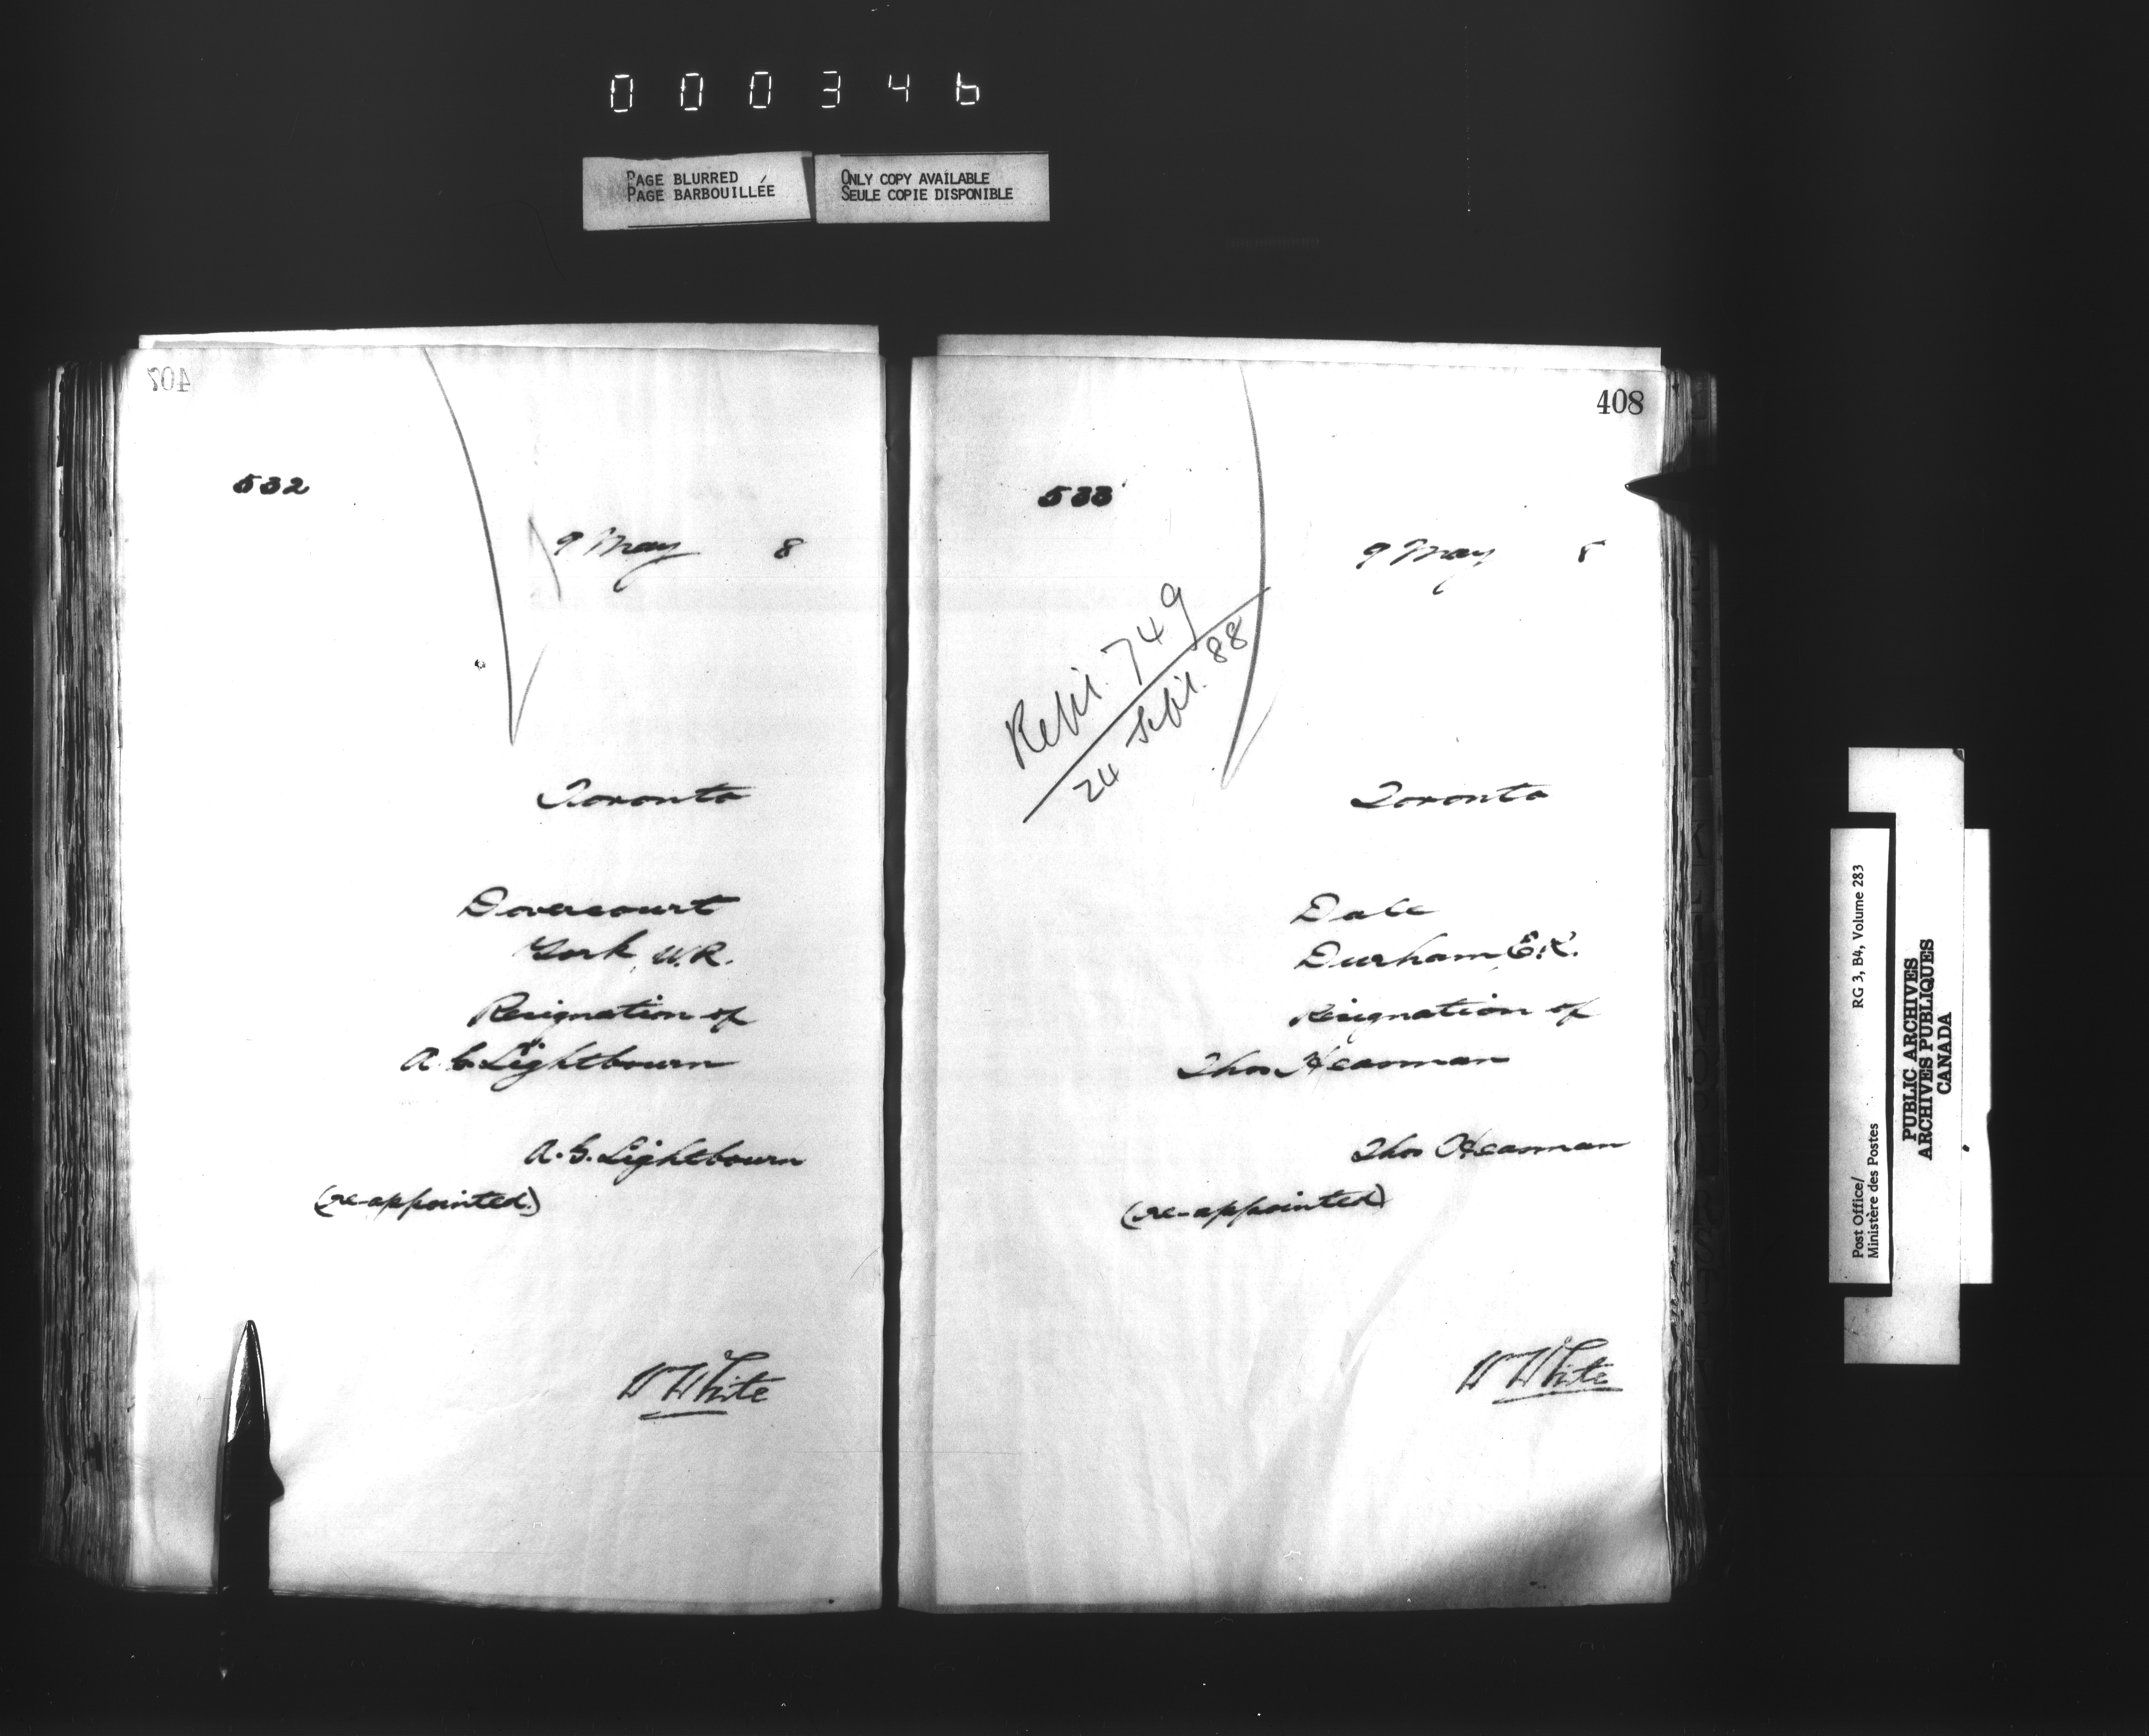 000346
PAGE BLURRED
PAGE BARBOUILLÉE
ONLY COPY AVAILABLE
SEULE COPIE DISPONIBLE
407
532
9 May 8
Toronto
Dovercourt
York, W.R.
Resignation of
A. G. Lightbourn
A. G. Lightbourn
(re-appointed)
W White
408
533
9 May 8
749
24 Sept. 88
Toronto
Dale
Durham, E.R.
Resignation of
Thos Hearman
Thos Hearman
(re-appointed)
W White
Post Office/
Ministère des Postes
RG 3, B4, Volume 283
PUBLIC ARCHIVES
ARCHIVES PUBLIQUES
CANADA